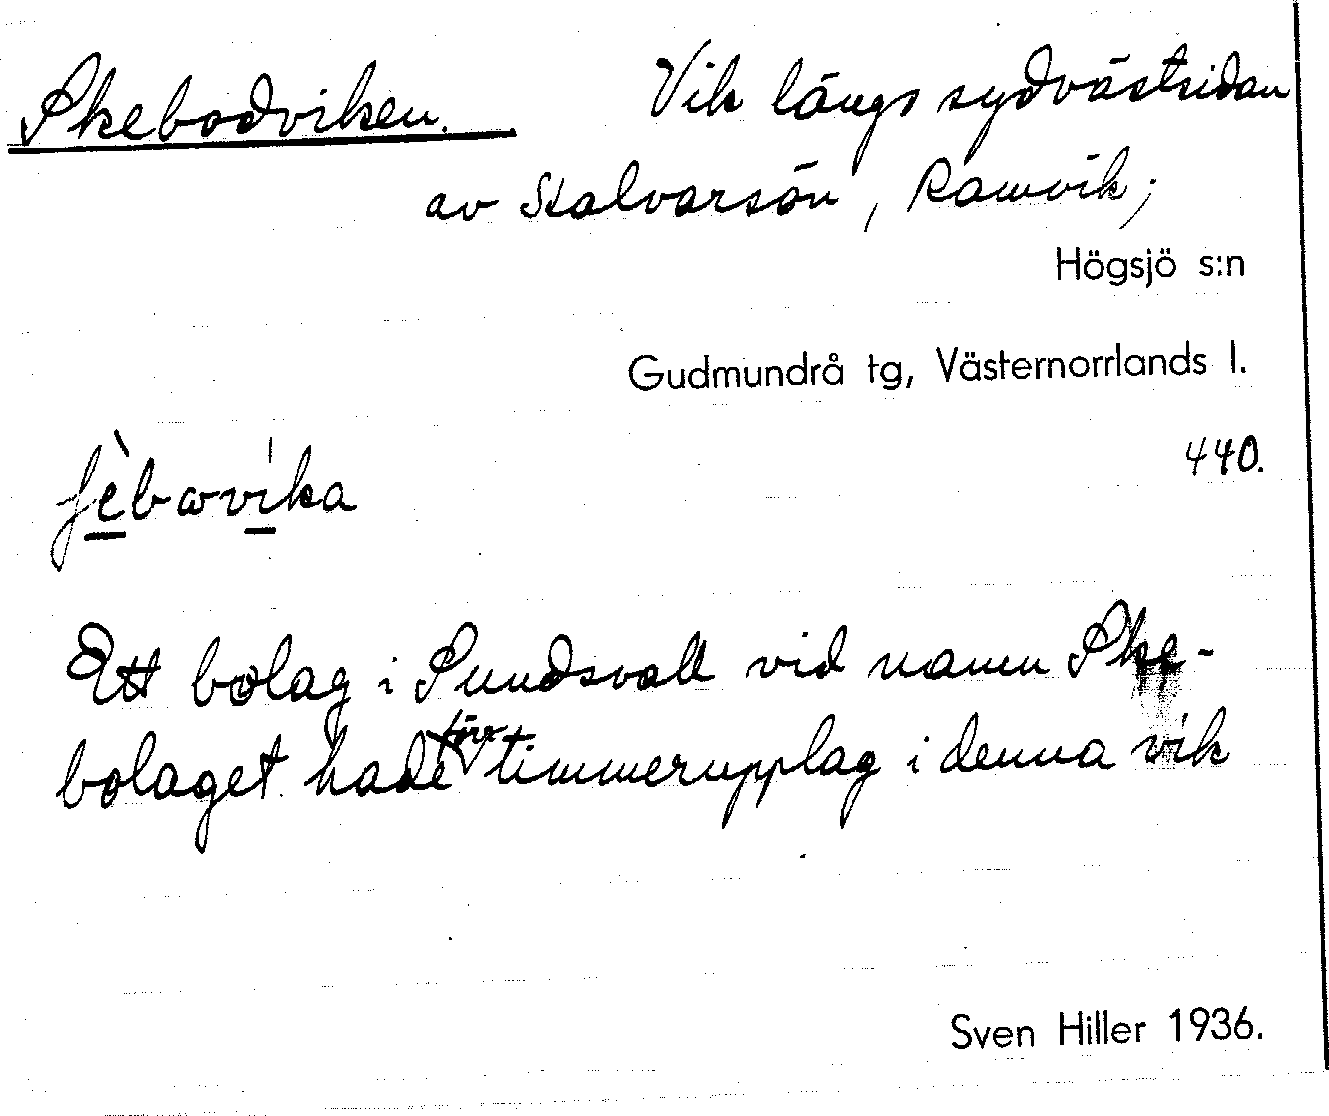 Skebodviken. Vik längs sydvästsidan
av Stalvarsön, Ramvik;
Högsjö s:n
Gudmundrå tg, Västernorrlands l.
440.
ʃèbωvíka
Ett bolag i Sundsvall vid namn Ske-
bolaget hade förr timmerupplag i denna vik
Sven Hiller 1936.